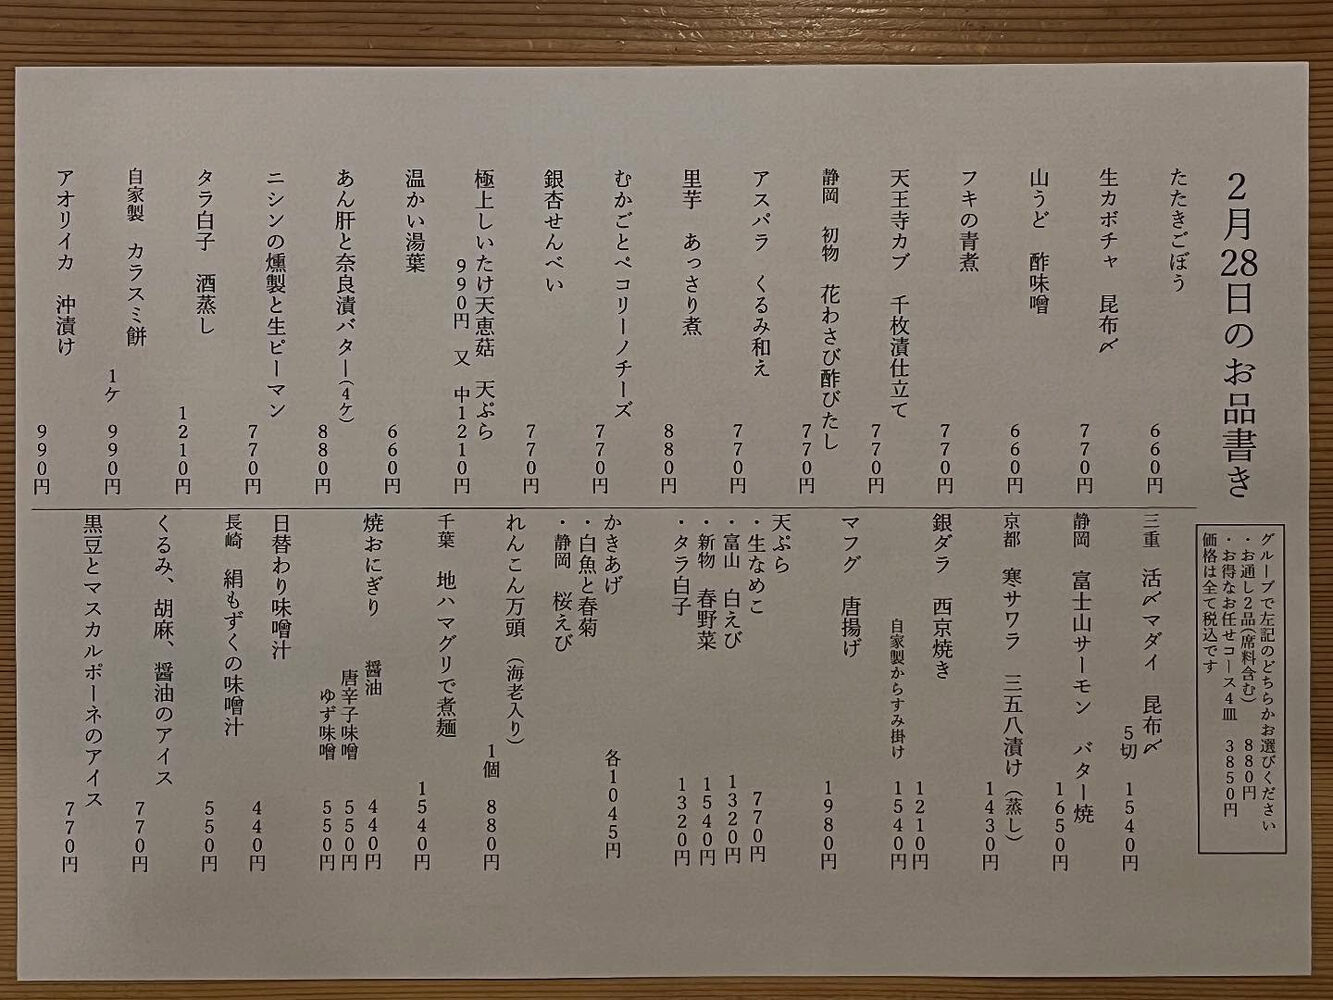 2月28日のお品書き
たたきごぼう 660円
生カボチャ 昆布〆 770円
山うど 酢味噌 660円
フキの青煮 770円
天王寺カブ 千枚漬仕立て 770円
静岡 初物 花わさび酢びたし 770円
アスパラ くるみ和え 770円
里芋 あっさり煮 880円
むかごとペコリーノチーズ 770円
銀杏せんべい 770円
極上しいたけ天恵菇 天ぷら
990円 又 中1210円
温かい湯葉 660円
あん肝と奈良漬バター(4ケ) 880円
ニシンの燻製と生ピーマン 770円
タラ白子 酒蒸し 1210円
自家製 カラスミ餅 1ケ 990円
アオリイカ 沖漬け 990円
グループで左記のどちらかお選びください
・お通し2品(席料含む) 880円
・お得なお任せコース4皿 3850円
価格は全て税込です
三重 活〆マダイ 昆布〆 5切 1540円
静岡 富士山サーモン バター焼 1650円
京都 寒サワラ 三五八漬け(蒸し) 1430円
銀ダラ 西京焼き 1210円
自家製からすみ掛け 1540円
マフグ 唐揚げ 1980円
天ぷら
・生なめこ 770円
・富山 白えび 1320円
・新物 春野菜 1540円
・タラ白子 1320円
かきあげ 各1045円
・白魚と春菊
・静岡 桜えび
れんこん万頭(海老入り) 1個 880円
千葉 地ハマグリで煮麺 1540円
焼おにぎり 醤油 440円
唐辛子味噌 550円
ゆず味噌 550円
日替わり味噌汁 440円
長崎 絹もずくの味噌汁 550円
くるみ、胡麻、醤油のアイス 770円
黒豆とマスカルポーネのアイス 770円